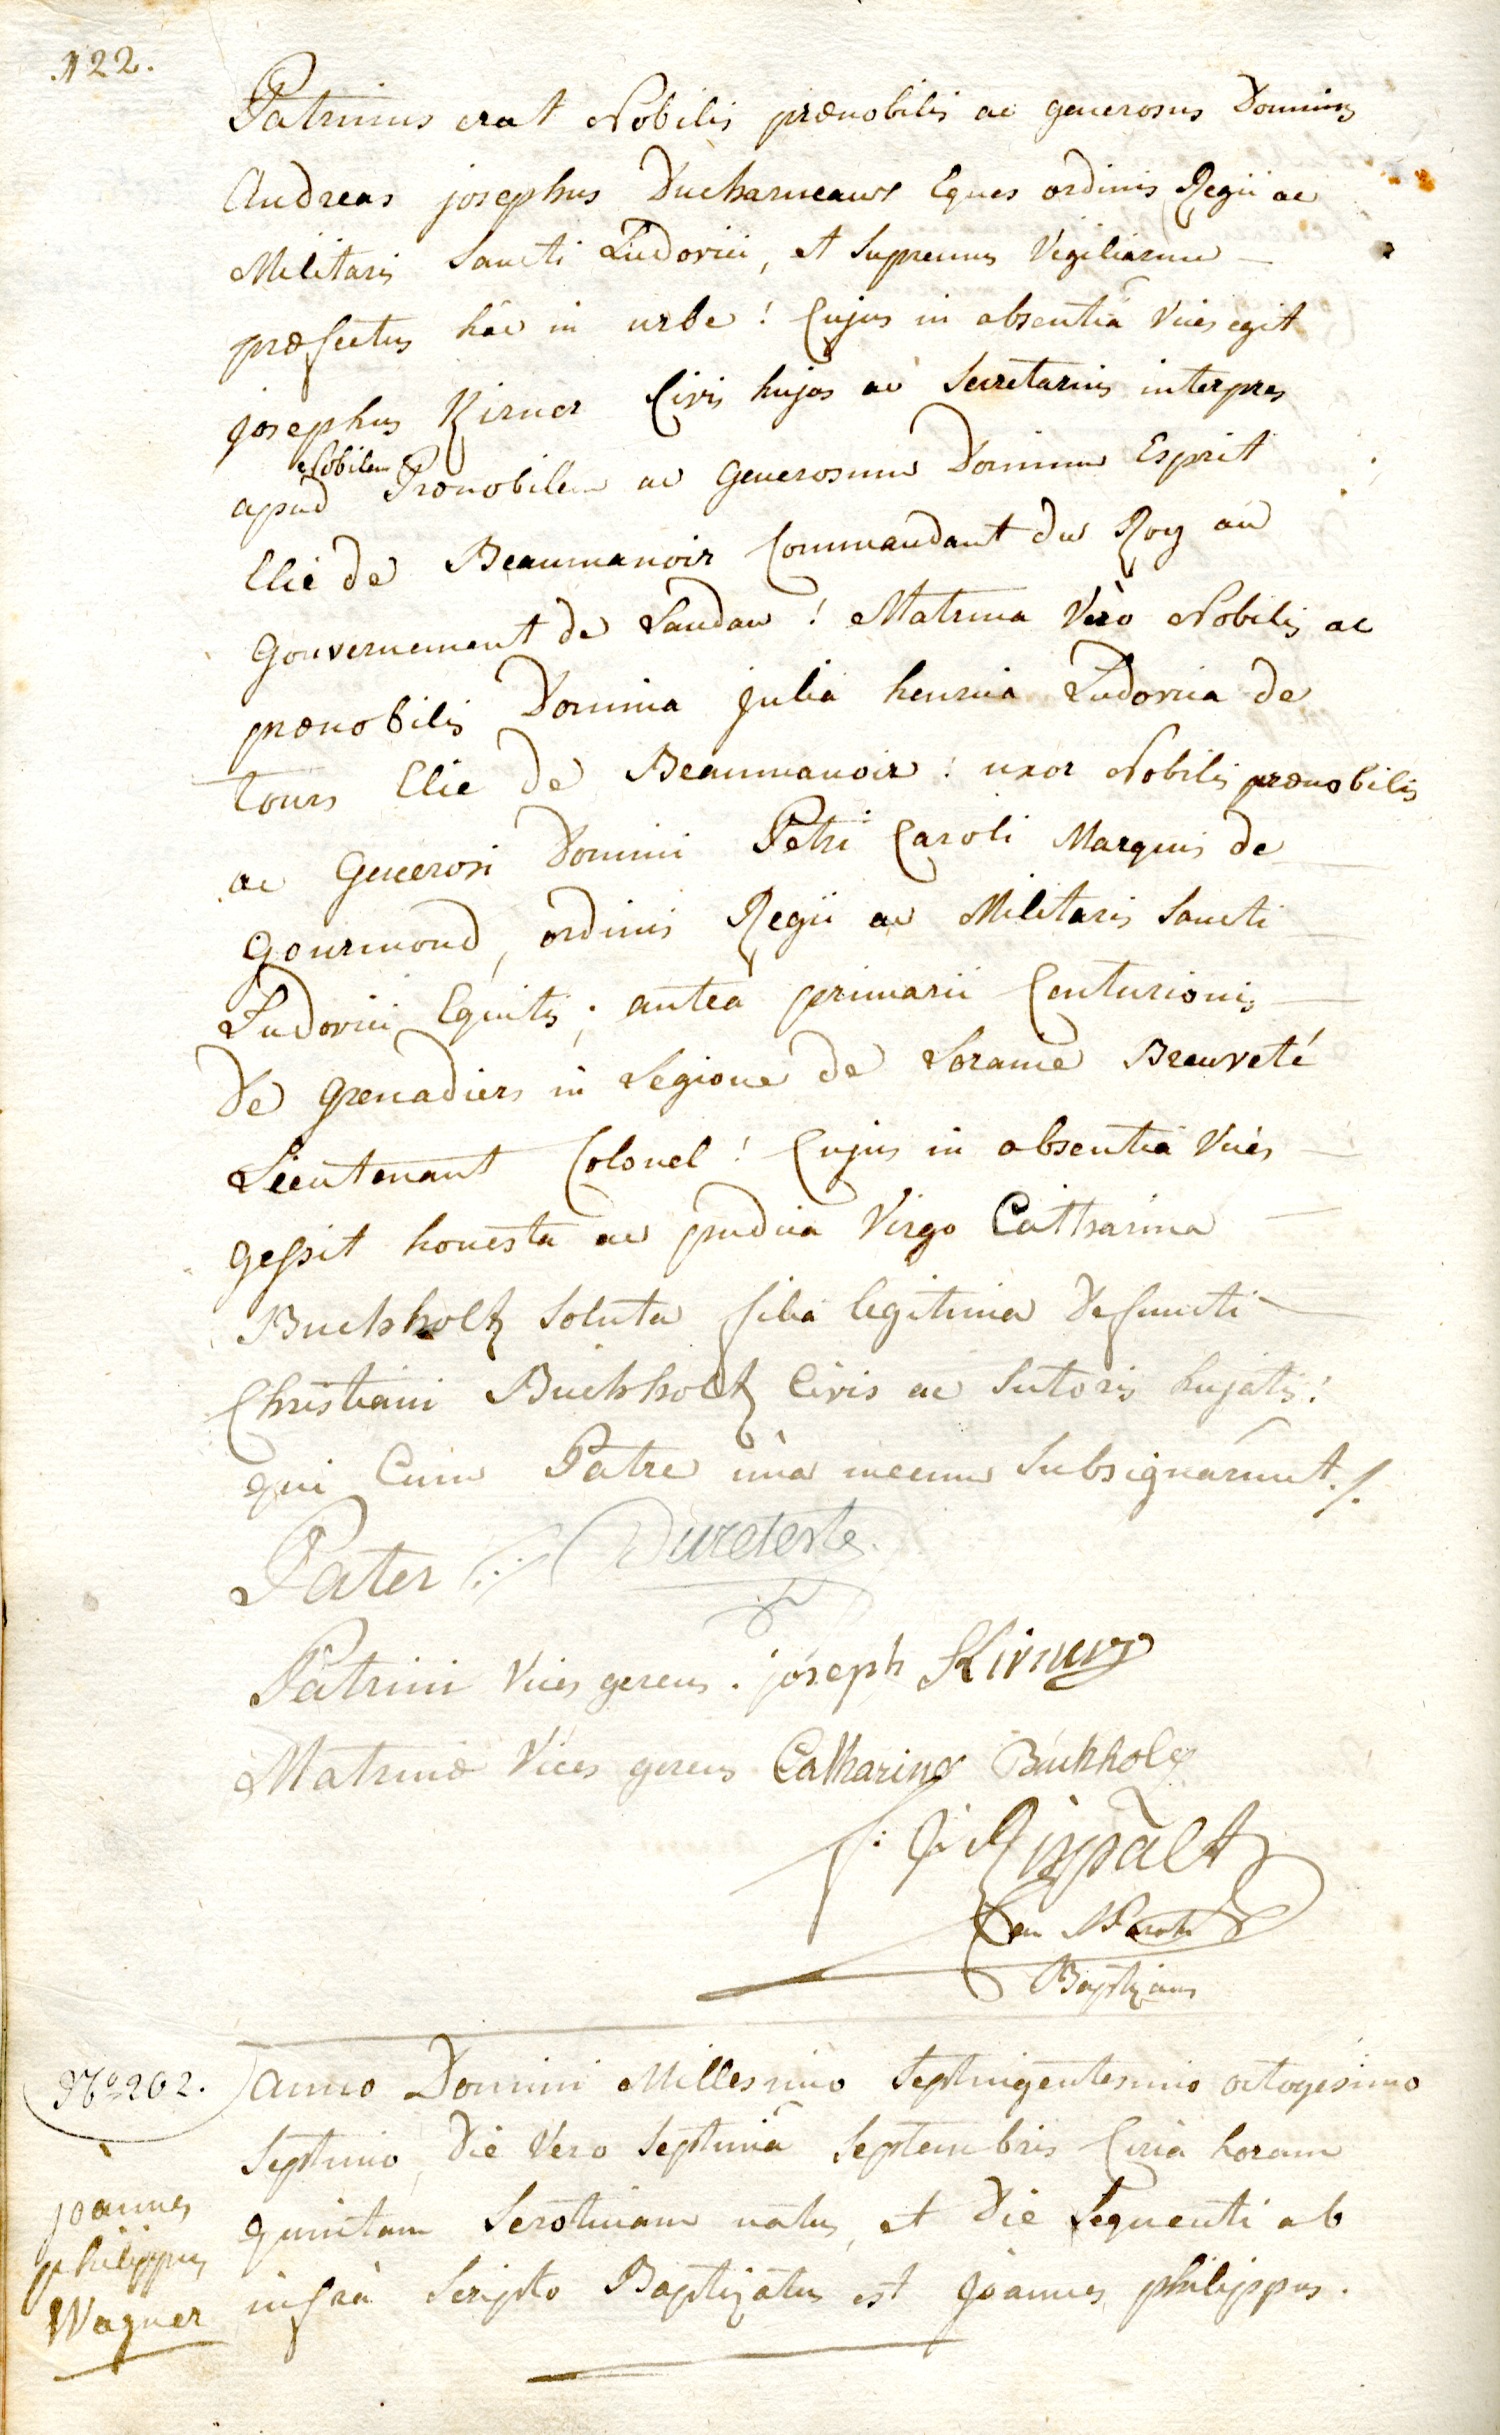 122.
Patrinus erat Nobilis prænobilis ac generosus Dominus
Andreas josephus Ducharneaux Eques ordinis Regii ac
Militaris Sancti Ludovici, et Supremus Vigiliarum
præfectus hâc in urbe! Cujus in absentiâ Vices egit
josephus Kirner Civis hujas ac Secretarius interpres
Nobilem
apud Prænobilem ac Generosum Dominum Esprit
Elie de Beaumanoir Commandant du Roy au
Gouvernement de Landau! Matrina Vero Nobilis ac
prænobilis Domina julia henrica Ludovica de
tours Elie de Beaumanoir: uxor Nobilis prænobilis
ac Generosi Domini Petri Caroli Marquis de
Gourmond, ordinis Regii ac Militaris Sancti
Ludovici Equitis; anteà primarii Centurionis
De Grenadiers in Legione de Loraine Breuveté
Lieutenant Colonel! Cujus in absentiâ Vices
gessit honesta ac pudica Virgo Catharina
Buchholtz Soluta filia legitima Defuncti
Christiani Buchholtz Civis ac Sutoris hujatis!
qui Cum Patre unà mecum Subsignârunt ./.
Pater
Patrini Vices gerens. joseph Kirner
Matrinæ Vices gerens Catharina Buchholz
Baptizans
Nº 202. anno Domini Millesimo Septingentesimo octogesimo
Septimo, Die Vero Septimâ Septembris Circa horam
quintam Serotinam natus, et Die Sequenti ab
infrà Scripto Baptizatus est joannes philippus.
joannes
philippus
Wagner